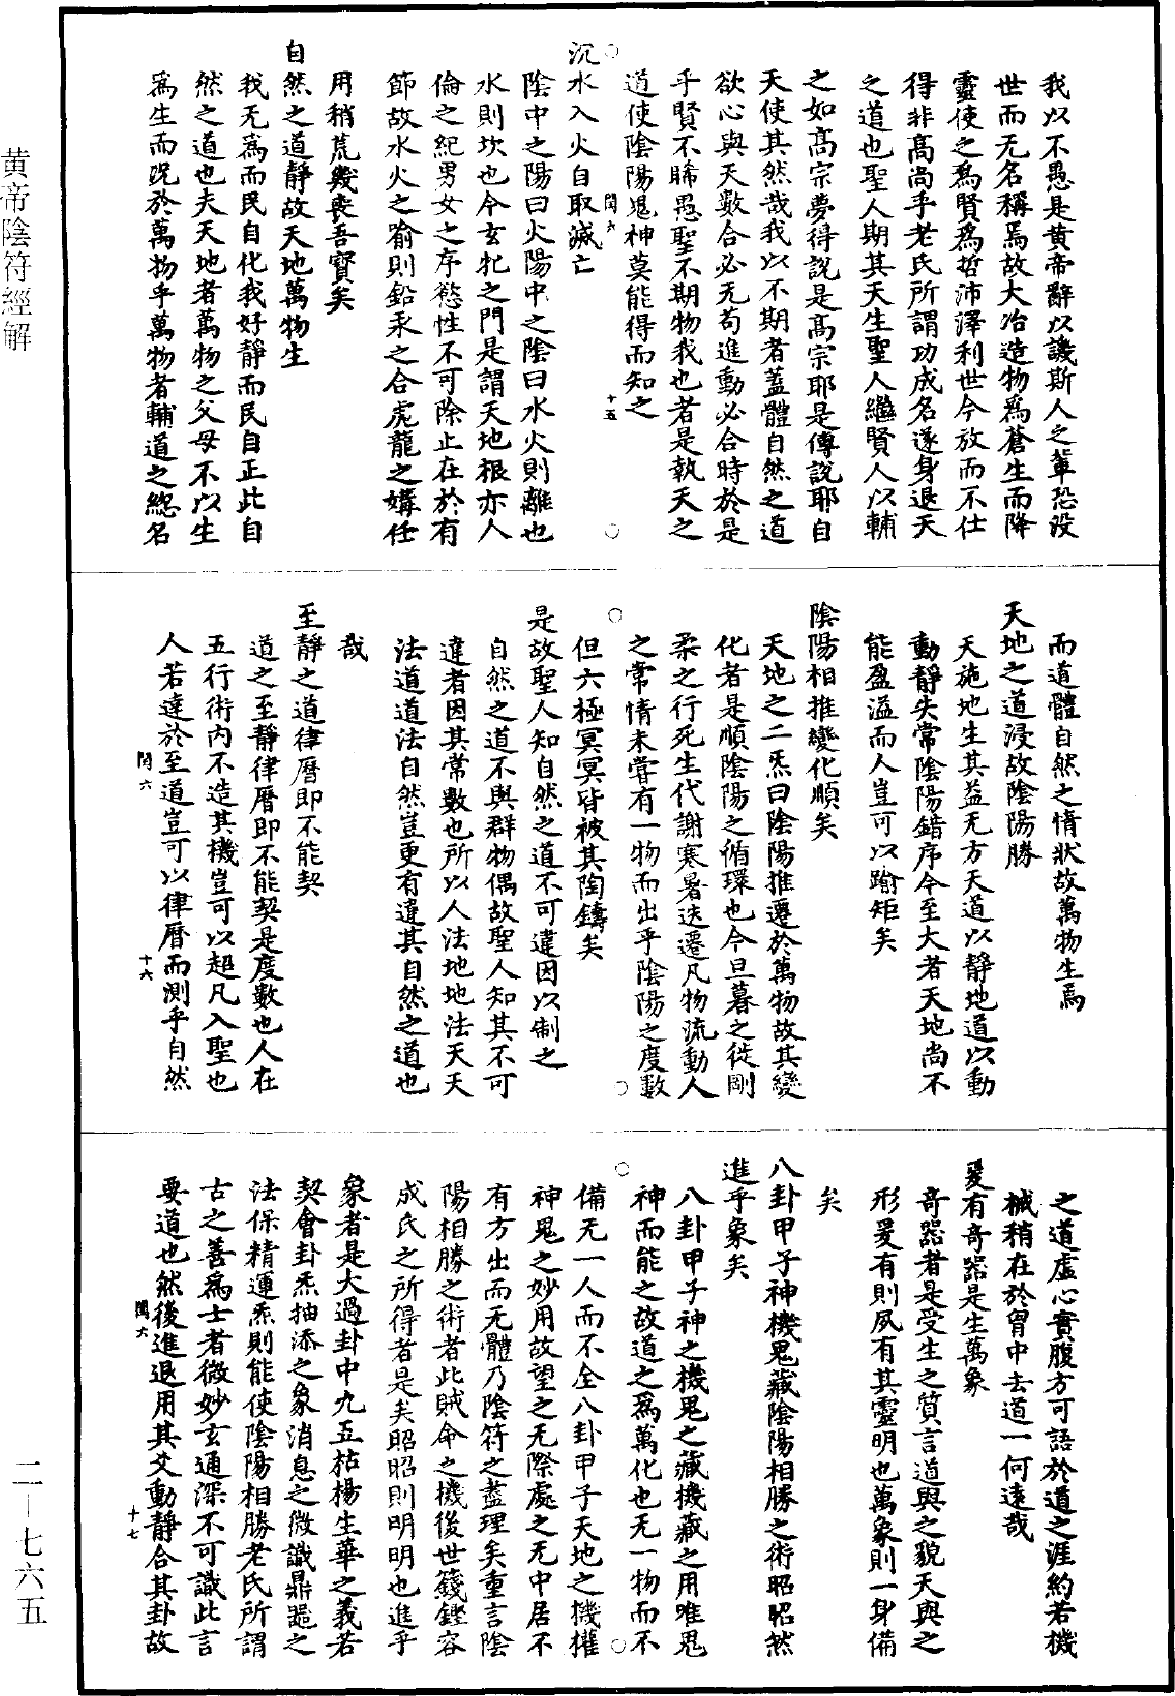 黄帝陰符經解
二—七六五
我以不愚是黄帝辭以譏斯人之輩恐没
世而无名稱焉故大冶造物爲蒼生而降
靈使之爲賢爲哲沛澤利世今放而不仕
得非高尚乎老氏所謂功成名遂身退天
之道也聖人期其天生聖人繼賢人以輔
之如高宗夢得説是高宗耶是傅説耶自
天使其然哉我以不期者蓋體自然之道
欲心與天數合必无苟進動必合時於是
乎賢不睎愚聖不期物我也者是執天之
道使陰陽鬼神莫能得而知之
閏六 十五
沉水入火自取滅亡
陰中之陽曰火陽中之陰曰水火則離也
水則坎也今玄牝之門是謂天地根亦人
倫之紀男女之序慾性不可除止在於有
節故水火之喻則鉛汞之合虎龍之媾任
用稍荒幾喪吾寳矣
自然之道靜故天地萬物生
我无爲而民自化我好靜而民自正此自
然之道也夫天地者萬物之父母不以生
爲生而况於萬物乎萬物者輔道之緫名
而道體自然之情状故萬物生焉
天地之道浸故陰陽勝
天施地生其益无方天道以靜地道以動
動靜失常陰陽錯序今至大者天地尚不
能盈溢而人豈可以踰矩矣
陰陽相推變化順矣
天地之二炁曰陰陽推遷於萬物故其變
化者是順陰陽之循環也今旦暮之徙剛
柔之行死生代謝寒暑迭遷凡物流動人
之常情未嘗有一物而出乎陰陽之度數
但六極冥冥皆被其陶鑄矣
是故聖人知自然之道不可違因以制之
自然之道不與群物偶故聖人知其不可
違者因其常數也所以人法地地法天天
法道道法自然豈更有違其自然之道也
哉
至靜之道律曆即不能契
道之至靜律曆即不能契是度數也人在
五行術内不造其機豈可以超凡入聖也
人若達於至道豈可以律曆而測乎自然
閏六 十六
之道虚心實腹方可語於道之涯約若機
械稍在於胷中去道一何遠哉
爰有奇器是生萬象
奇器者是受生之質言道與之貌天與之
形爰有則夙有其靈明也萬象則一身備
矣
八卦甲子神機鬼藏陰陽相勝之術昭昭然
進乎象矣
八卦甲子神之機鬼之藏機藏之用唯鬼
神而能之故道之爲萬化也无一物而不
備无一人而不全八卦甲子天地之機權
神鬼之妙用故望之无際處之无中居不
有方出而无體乃陰符之盡理矣重言陰
陽相勝之術者此賊命之機後世籛鏗容
成氏之所得者是矣昭昭則明明也進乎
象者是大過卦中九五枯楊生華之義若
契會卦炁抽添之象消息之微識鼎噐之
法保精運炁則能使陰陽相勝老氏所謂
古之善爲士者微妙玄通深不可識此言
要道也然後進退用其爻動靜合其卦故
閏六 十七